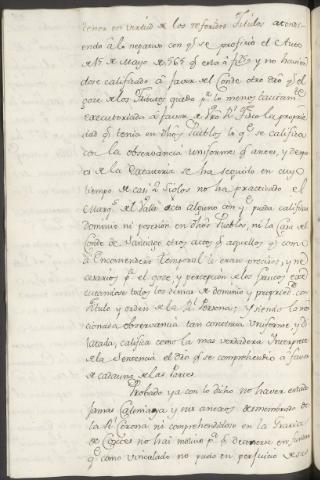 tener en virtud de los referidos Titulos atendi-
endo à lo negativo con q.e se profirio el Auto
de 15 de Mayo de 1565 q.e esta à f.
dose calificado à favor del Conde otro dro q.e el
goze de los Tributos quedó p.r lo menos tacitam.te
executoriada à favor de Vro R.l Fisco la proprie
dad q.e tenia en dhos Pueblos lo q.e se califica
con la observancia uniforme q.e antes, y despu
es de la executoria se ha seguido en cuyo
tiempo de casi 2 siglos no ha practicado el
Marq.s del Valle acto alguno con q.e pueda calificar
dominio ni posesion en dhos Pueblos, ni la Casa del
Conde de Santiago otros actos q.e aquellos q.e como
à Encomendero temporal le eran precisos, y ne
cesarios p.a el goze, y percepcion de los frutos exe
cutandose todos los demas de dominio y propriedad con
titulo y orden de la R.l Persona; Y siendo la re
lacionada observancia tan constante uniforme, y di
latada, califica como la mas verdadera Interprete
de la Sentencia el dro q.e se comprehendio à favor
de cadauna de las Partes.
Probado ya con lo dicho no haver estado
jamas Calimaya y sus anexos desmembrados de
la R.l Corona ni comprehendidos en la Gracia
de Cortes no hai motivo p.a detenerse en fundar
q.e como vinculado no pudo en perjuicio de sus